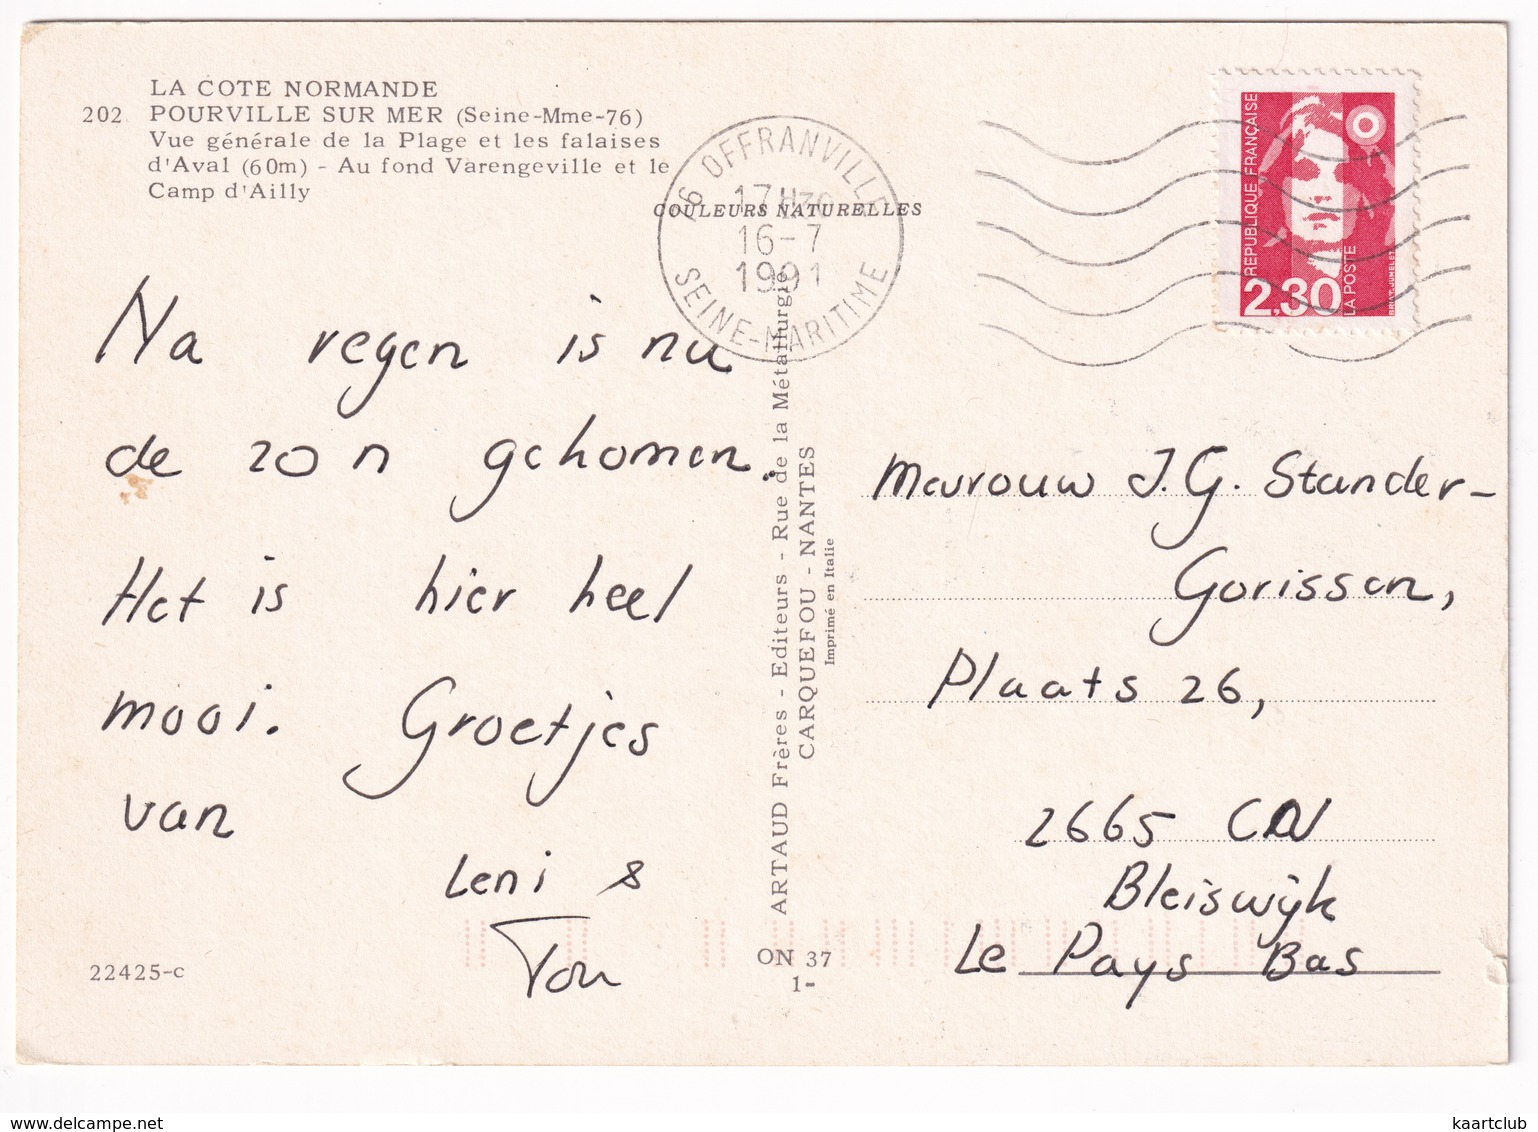 LA COTE NORMANDE
202 POURVILLE SUR MER (Seine-Mme-76)
Vue générale de la Plage et les falaises
d'Aval (60m) - Au fond Varengeville et le
Camp d'Ailly
COULEURS NATURELLES
76 OFFRANVILLE
17H30
16-7
1991
SEINE-MARITIME
REPUBLIQUE FRANÇAISE
2,30
LA POSTE
BRIAT-JUMELET
Na regen is nu
de zon gekomen.
Het is hier heel
mooi. Groetjes
van
Leni &
Ton
ARTAUD Frères - Editeurs - Rue de la Métallurgie
CARQUEFOU - NANTES
Imprimé en Italie
Mevrouw J.G. Stander-
Gorissen,
Plaats 26,
2665 CN
Bleiswijk
Le Pays Bas
22425-c
ON 37
1-
www.delcampe.net
kaartclub